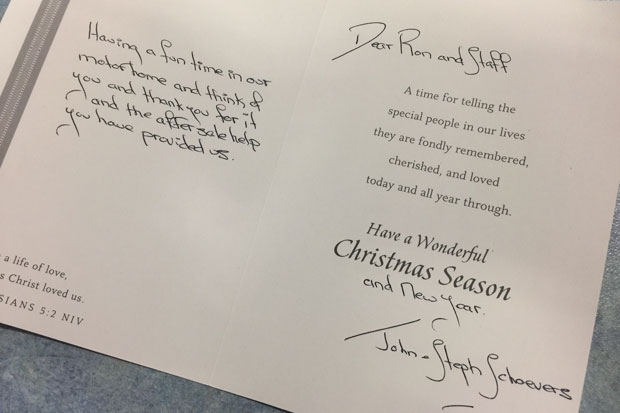 Having a fun time in our
motorhome and think of
you and thank you for it
and the after sale help
you have provided us.
a life of love,
s Christ loved us.
SIANS 5:2 NIV
Dear Ron and Staff
A time for telling the
special people in our lives
they are fondly remembered,
cherished, and loved
today and all year through.
Have a Wonderful
Christmas Season
and New Year.
John - Steph Schoevers